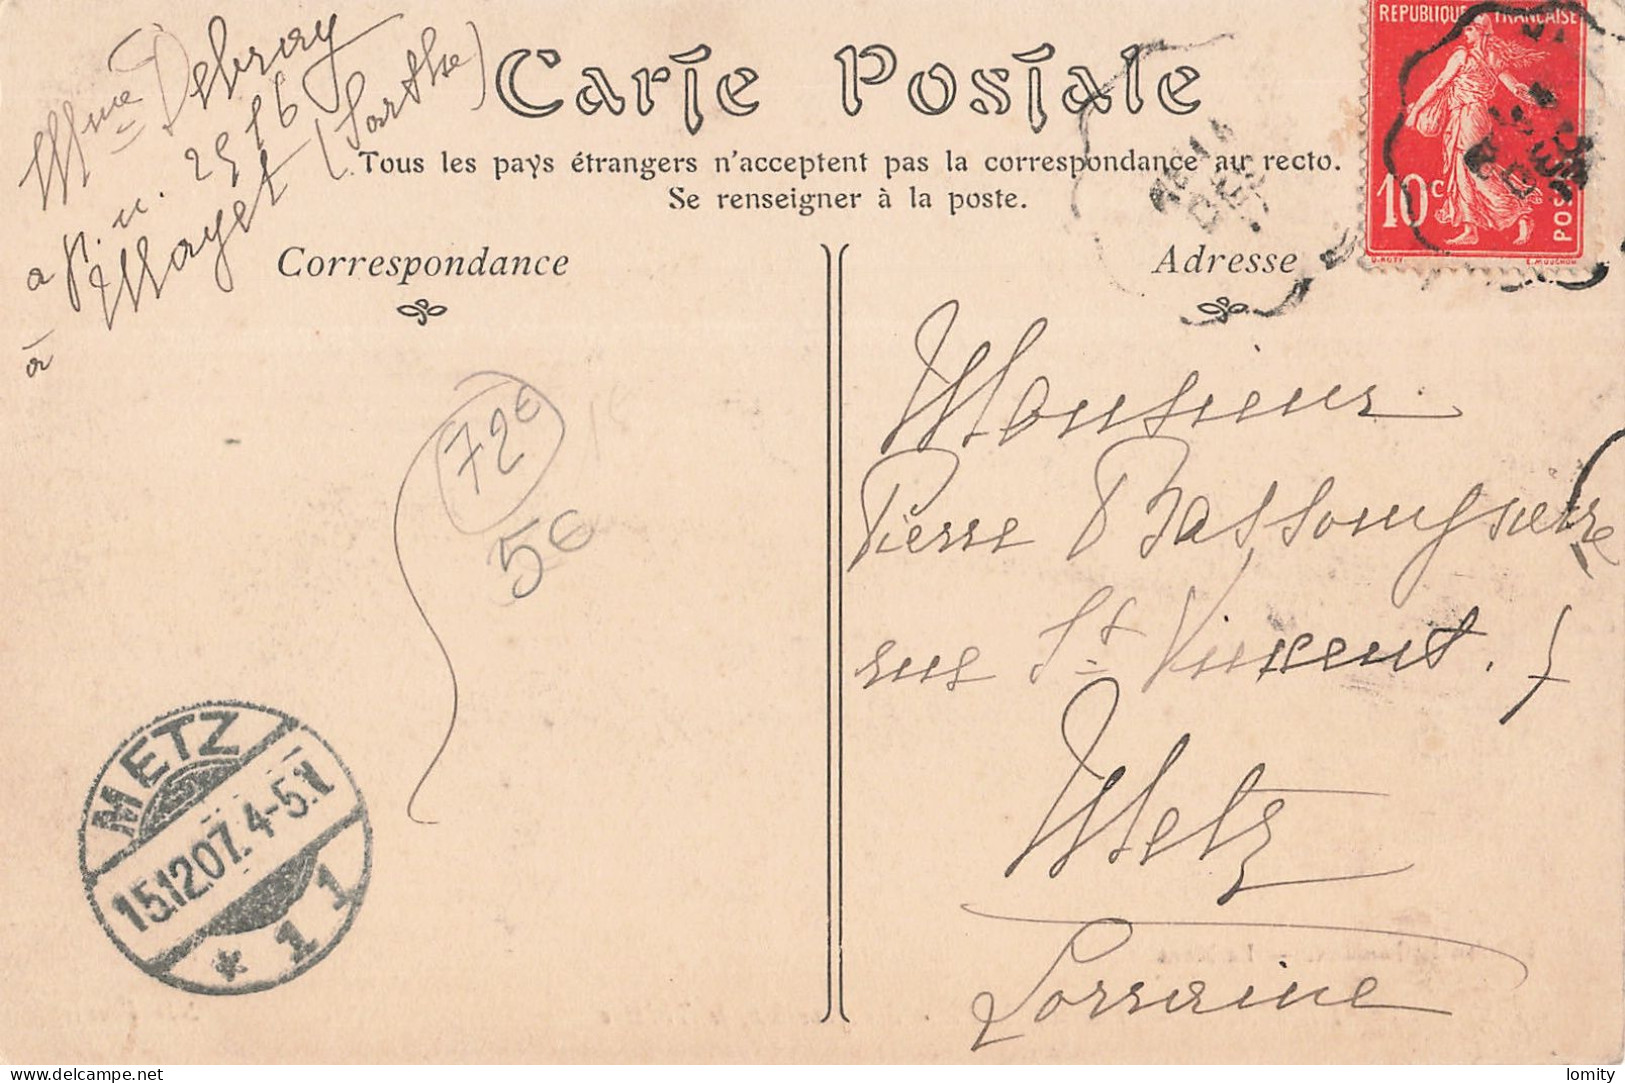 Mme Debray
a p. n. 2516
à Mayet (Sarthe)
Carte Postale
Tous les pays étrangers n'acceptent pas la correspondance au recto.
Se renseigner à la poste.
Correspondance
Adresse
REPUBLIQUE FRANÇAISE
10c
POSTES
O. ROTY.
E. MOUCHON
DEC
72
5€
Monsieur
Pierre Bassompierre
rue St Vincent.
Metz
Lorraine
METZ
15.12.07. 4-5.N
* 1 1
www.delcampe.net
lomity